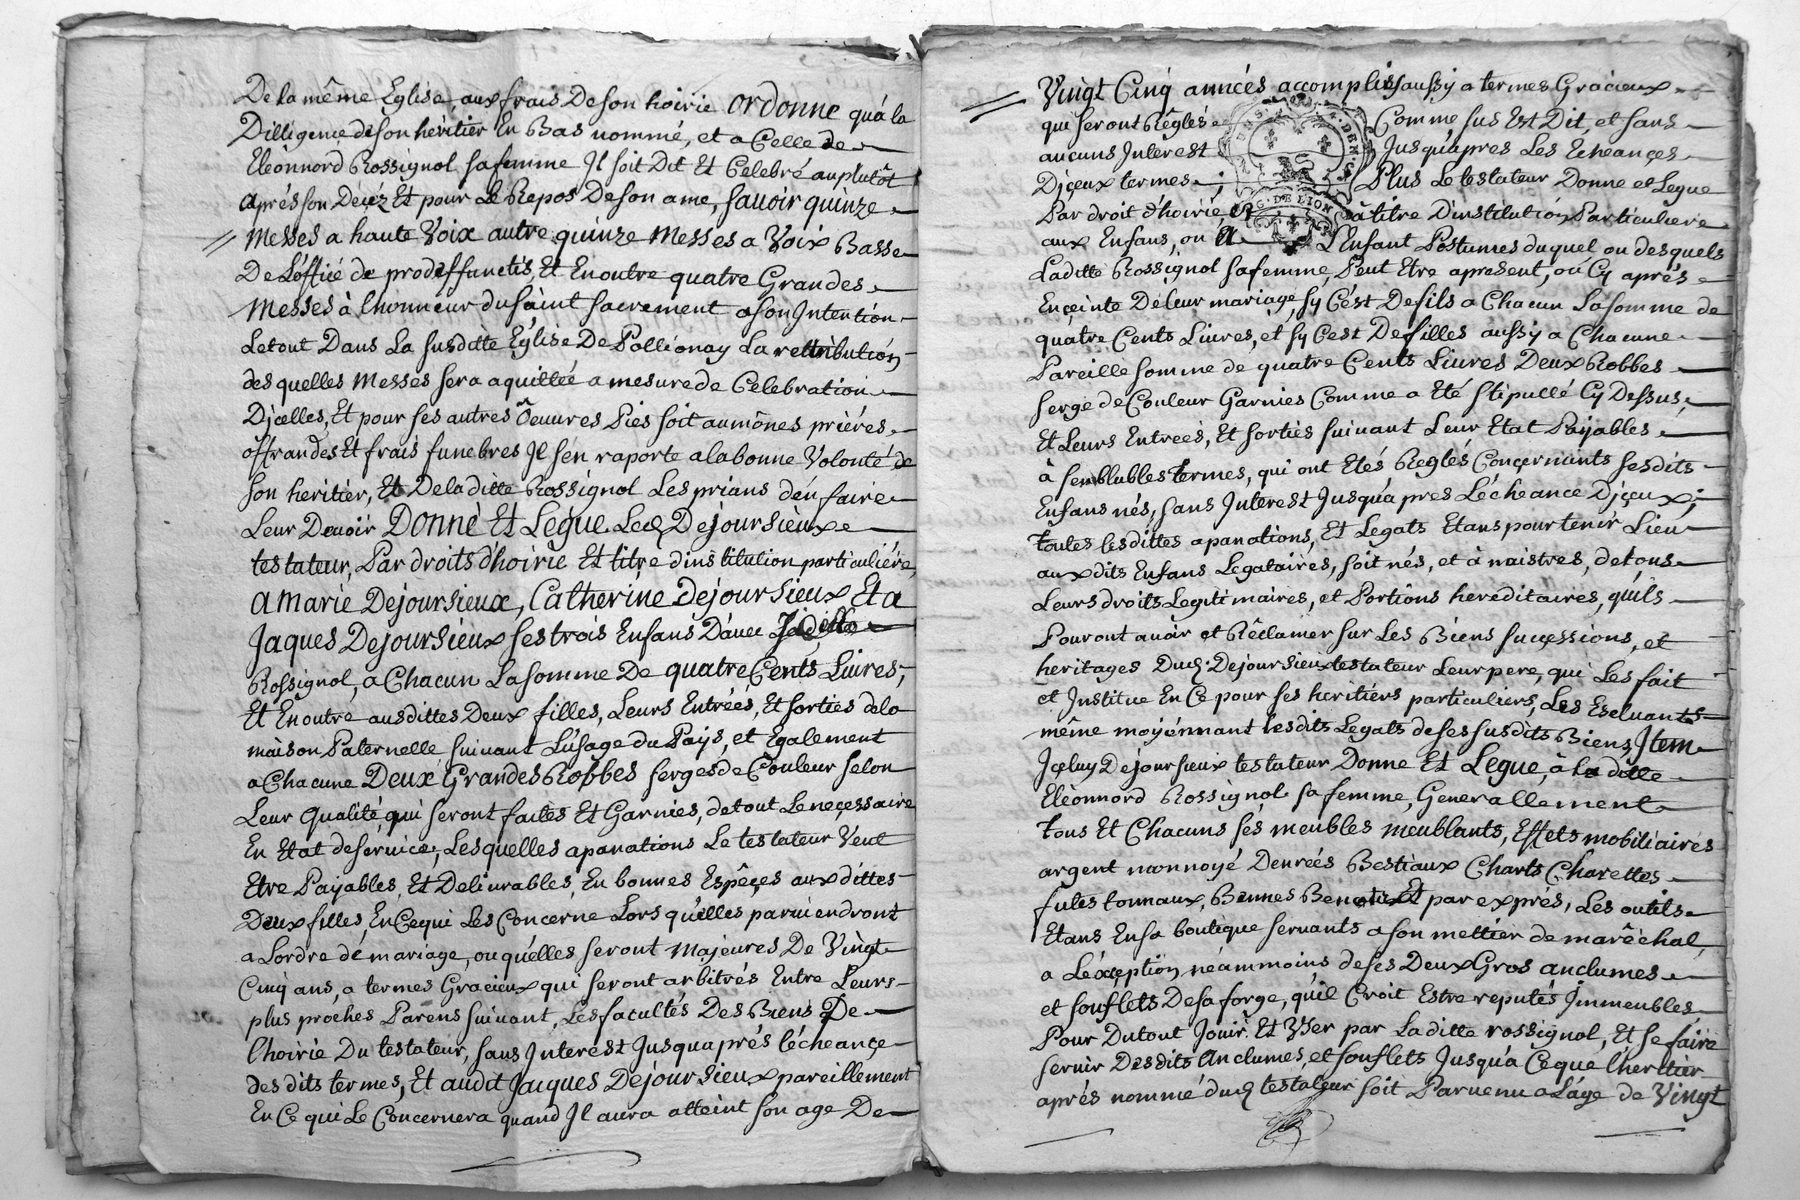 De la même Eglise, aux frais De son hoirie ordonne qu'a la
Dilligence de son héritier En Bas nommé, et a Celle de
Eleônnord Rossignol sa femme Il soit Dit Et Celebré au plutôt
aprés son Decéz Et pour Le Repos De son ame, sauoir quinze
Messes a haute Voix autre quinze Messes a Voix Basse
De L'offié de prodeffunctis, Et En outre quatre Grandes
Messes à lhonneur du saint sacrement a son Intention
Le tout Dans La susditte Eglise De Pollionay La rettribution
des quelles Messes sera aquittée a mesure de Celebration
Djcelles, Et pour ses autres Oeuures Pies soit aumônes priéres
offrandes Et frais funebres Jl s'en raporte a la bonne Volonté de
son heritier, Et De la ditte Rossignol Les prians d'en faire
Leur Deuoir Donne Et Legue Led Dejoursieux
testateur, Par droits d'hoirie Et titre dinstitution particuliére,
a Marie Dejoursieux, Catherine Dejoursieux Et a
Jaques Dejoursieux ses trois Enfans D'auec Laditte
Rossignol, a Chacun La somme De quatre Cents Liures;
Et En outre ausdittes Deux filles, Leurs Entrées, Et sorties de la
maison Paternelle suiuant L'usage du Pays, et Egalement
a Chacune Deux Grandes Robbes serges de Couleur selon
Leur Qualité, qui seront faites Et Garnies, de tout Le neçessaire
En Etat de seruice, Lesquelles apanations Le testateur Veut
Etre Payables, Et Deliurables, En bonnes Espêçes aux dittes
Deux filles, En Ce qui Les Concerne Lors qu'elles paruiendront
a Lordre de mariage, ou qu'elles seront Majeures De Vingt
Cinq ans, a termes Gracieux qui seront arbitrés Entre Leurs
plus proches Parens suiuant, Les facultés Des Biens De
l'hoirie Du testateur, sans Interest Jusqu'aprés l'écheançe
des dits termes, Et audit Jacques Dejoursieux pareillement
En Ce qui Le Concernera quand Jl aura atteint son age De
Vingt Cinq années accomplis aussy a termes Gracieux
qui seront Réglés Comme sus Est Dit, et sans
aucuns Interest Jusqu'apres Les Echeançes
Djçeux termes; Plus Le testateur Donne et Legue
Par droit dhoirie, Et à titre D'institution Particuliere
aux Enfans, ou a L'Enfant Postumes duquel ou desquels
Laditte Rossignol sa femme, Peut Etre apresent, ou Cy aprés
Enceinte De leur mariage, sy C'est De fils a Chacun La somme de
quatre Cents Liures, et sy C'est De filles aussy a Chacune
Pareille somme de quatre Cents Liures Deux Robbes
serge de Couleur Garnies Comme a Eté stipullé Cy Dessus,
Et Leurs Entreés, Et sorties suiuant Leur Etat Payables
à semblables termes, qui ont Etés Reglés Conçernants sesdits
Enfans nés, sans Interest Jusqu'apres L'écheance Djçeux;
toutes lesdittes apanations, Et Legats Etans pour tenir Lieu
aux dits Enfans Legataires, soit nés, et à naistres, de tous
Leurs droits Legitimaires, et Portions hereditaires, qu'ils
Pouront auoir et Réclamer sur Les Biens sucçessions, et
heritages Dud. Dejoursieux testateur Leur pere, qui Les fait
et Institue En Ce pour ses heritiérs particuliers, Les Escluants
même moyénnant lesdits Legats de ses susdits Biens, Jtem
Jçeluy Dejoursieux testateur Donne Et Legue, à la ditte
Eléonnord Rossignol sa femme, Generallement
tous Et Chacuns ses meubles meublants, Effets mobiliairés
argent monnoyé Denreés Bestiaux Charts Charettes
futes tonnaux, Bennes Et par exprés, Les outils
Etans En sa boutique seruants a son mettier de maréchal,
a L'éxçeption néammoins de ses Deux Gros anclumes
et souflets De sa forge, qu'il Croit Estre reputés Jmmeubles,
Pour Du tout Jouir Et Vser par La ditte rossignol, Et se faire
seruir Desdits Anclumes, et souflets Jusqu'a Ce que l'heritier
aprés nommé dud testateur soit Paruenu a L'age de Vingt
G. DE LION